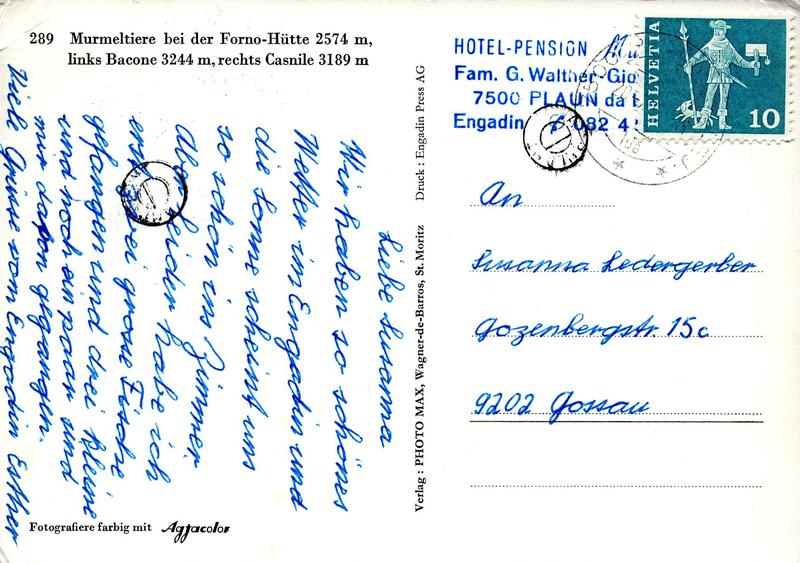 289 Murmeltiere bei der Forno-Hütte 2574 m,
links Bacone 3244 m, rechts Casnile 3189 m
Liebe Susanna
Wir haben so schönes
Wetter im Engadin und
die Sonne scheint uns
so schön ins Zimmer.
Aber leider habe ich
erst zwei grosse Fische
gefangen und drei kleine
und noch ein paar sind
mir dafon gegangen.
Viel Grüsse vom Engadin Esther
Fotografiere farbig mit Agfacolor
Verlag: PHOTO MAX, Wagner-de-Barros, St. Moritz Druck: Engadin Press AG
HOTEL-PENSION
Fam. G. Walther-Gio
7500 PLAUN da
Engadin 082 4
HELVETIA
10
An
Susanna Ledergerber
Gozenbergstr. 15c
9202 Gossau